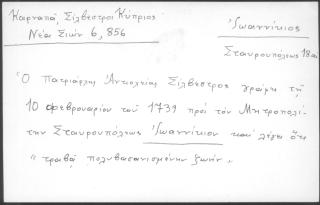 Καρναπᾶ, Σίλβεστρος Κύπριος
Νέα Σιών 6, 856
Ἰωαννίκιος
Σταυρουπόλεως 18 αι
Ὁ Πατριάρχης Ἀντιοχείας Σίλβεστρος γράφει τῇ
10 φεβρουαρίου τοῦ 1739 πρός τόν Μητροπολί
την Σταυρουπόλεως Ἰωαννίκιον καί λέγει ὅτι
" τραβᾷ πολυβασανισμένην ζωήν "